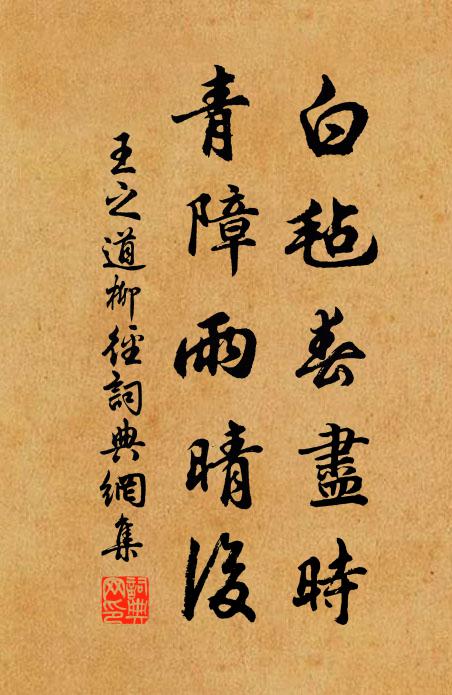 白毡春盡時
青障雨晴後
王之道柳徑詞典網集
詞典網印